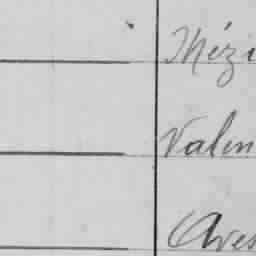 Mézi
Valen
Aves